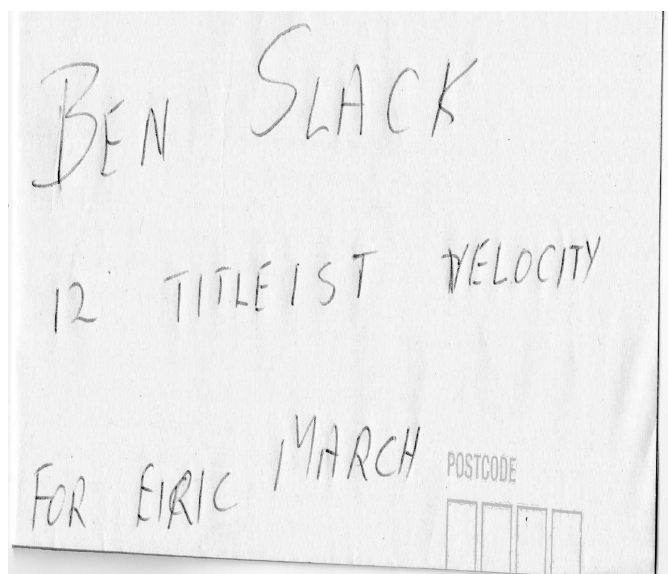 BEN SLACK
12 TITLEIST VELOCITY
FOR EIRIC MARCH
POSTCODE